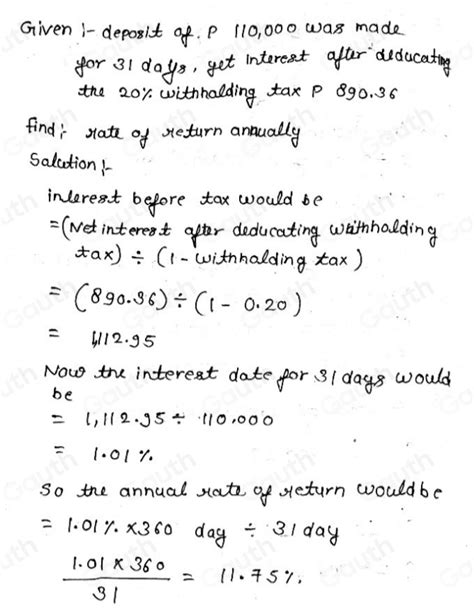 Given :- deposit of. P 110,000 was made
for 31 days, get interest after deducating
the 20% withholding tax P 890.36
find :- rate of return annually
Salution :-
interest before tax would be
= (Net interest after deducating withholding
tax) ÷ (1 - withholding tax)
= (890.36) ÷ (1 - 0.20)
= 1,112.95
Now the interest date for 31 days would
be
= 1,112.95 ÷ 110,000
= 1.01 %.
So the annual rate of return would be
= 1.01 %. x 360 day ÷ 31 day
1.01 x 360
31
= 11.75 %.